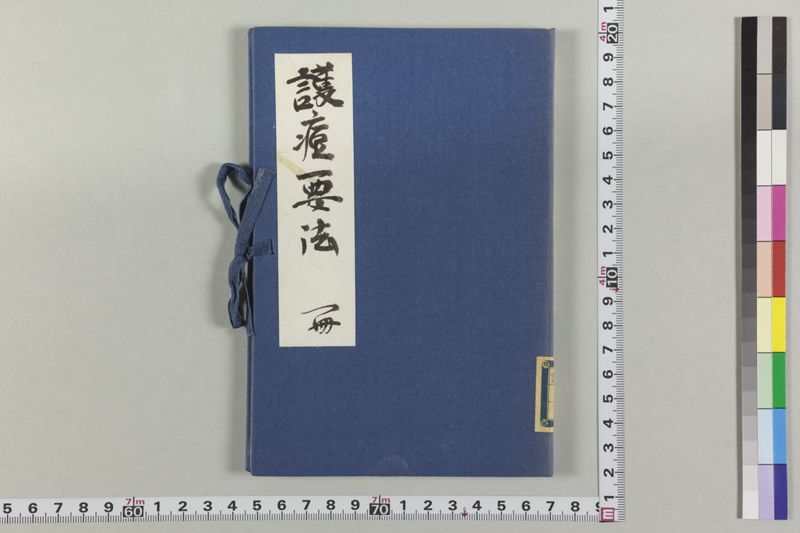 護痘要法 一冊
4m
20
9
8
7
6
5
4
3
2
1
4m
10
9
8
7
6
5
4
3
2
1
5 6 7 8 9 7m 60 1 2 3 4 5 6 7 8 9 7m 70 1 2 3 4 5 6 7 8 9